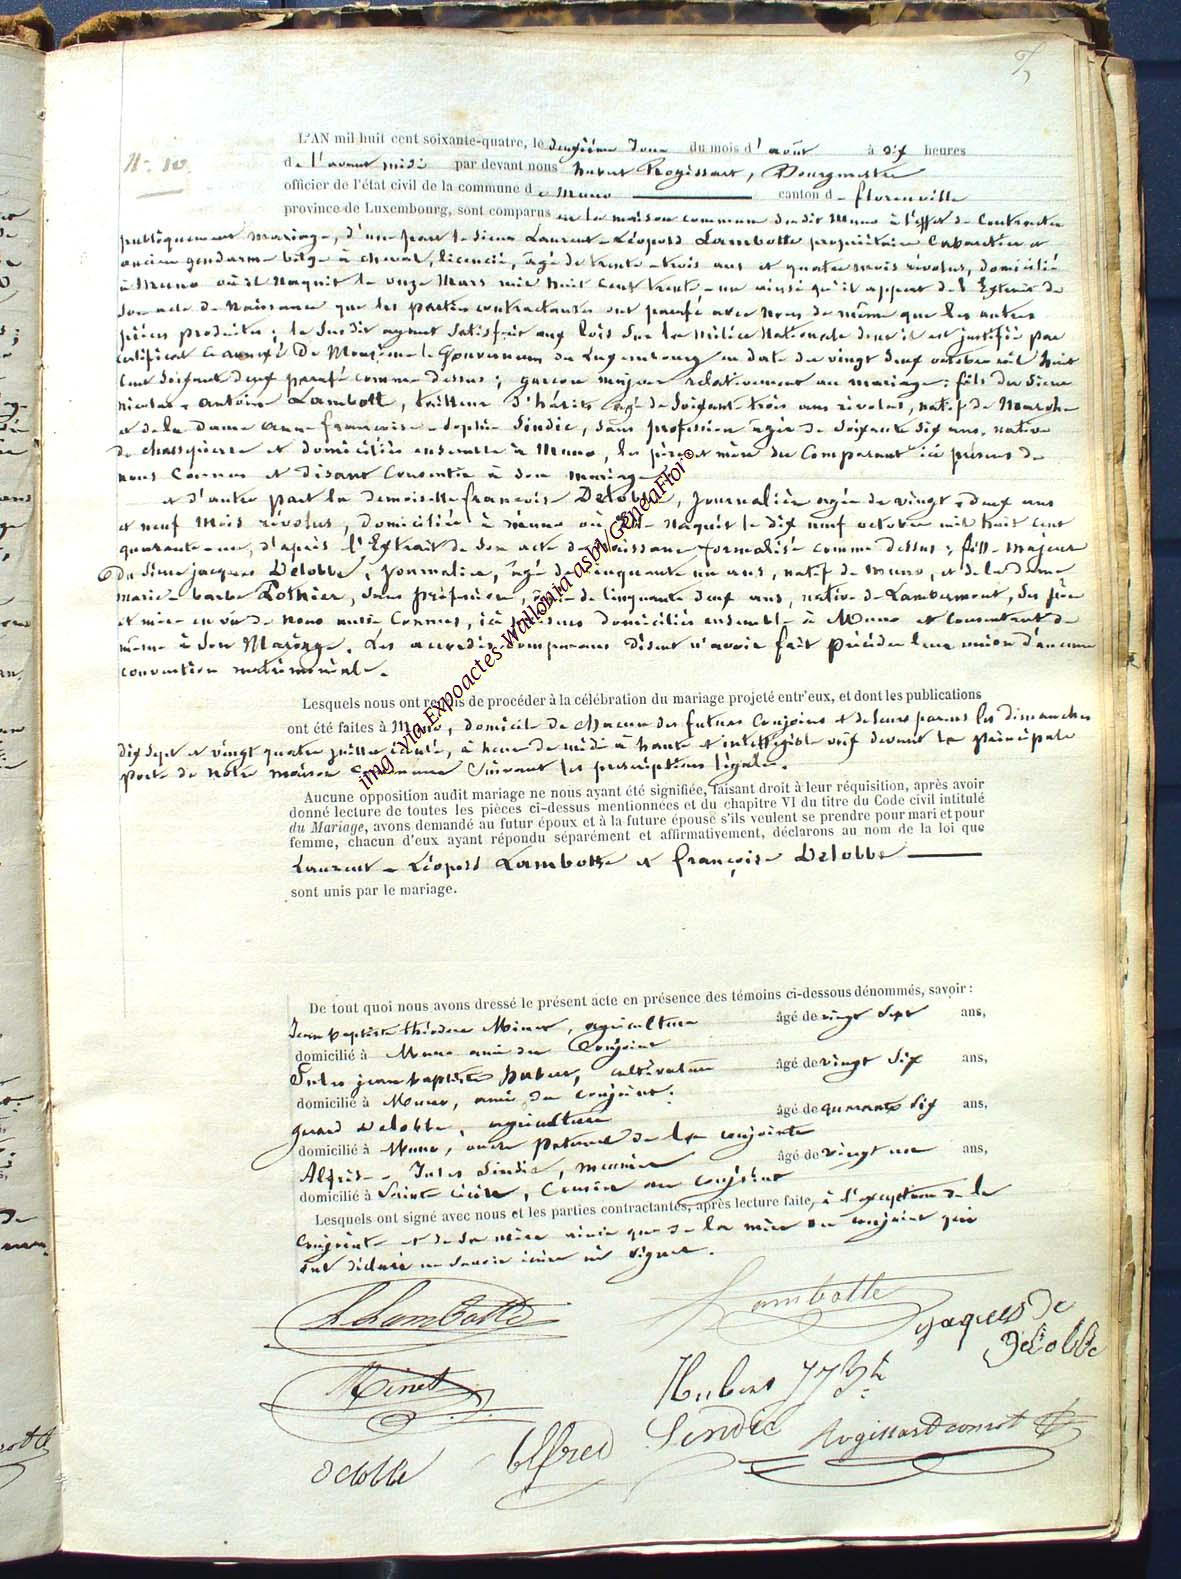 N° 10
L'AN mil huit cent soixante-quatre, le deuxième jour du mois d'août à dix heures
de l'avant midi par devant nous hubert Rogissart, Bourgmestre
officier de l'état civil de la commune de Muno canton de florenville
province de Luxembourg, sont comparus en la maison commune dudit Muno à l'effet de Contracter
publiquement mariage, d'une part le sieur Laurent-Léopold Lambotte propriétaire Cabaretier et
ancien gendarme belge à cheval, licencié, âgé de trente-trois ans et quatre mois révolus, domicilié
à Muno où il Naquit le onze Mars mil huit cent trente-un ainsi qu'il appert de l'Extrait de
son acte de Naissance que les parties contractantes ont paraphé avec Nous de même que les autres
pièces produites; le susdit ayant satisfait aux lois sur la milice Nationale dont il est justifié par
certificat annexé De Monsieur le Gouverneur du Luxembourg en date du vingt deux octobre mil huit
cent soixant deux comme dessus; garçon majeur relativement au mariage; fils du sieur
nicolas-antoine Lambott, tailleur d'habits âgé de soixante-trois ans révolus, natif de
et de la dame anne françoise-Sophie Sindic, sans profession âgée de soixante dix ans, native
de chassepierre et domiciliés ensemble à Muno, les père et mère du Comparant ici présens de
nous Connus et disant Consentir à son mariage
et d'autre part la demoiselle françoise Delobbe, journalière agée de vingt-deux ans
et neuf Mois révolus, domiciliée à Muno où Elle Naquit le dix neuf octobre mil huit cent
quarante-un, d'après l'Extrait de son acte de Naissance formalisé comme dessus; fille majeure
du sieur jacques Delobbe, journalier, âgé de cinquante un ans, natif de muno, et de la Dame
marie-barbe Pothier, sans profession, âgée de cinquante deux ans, native de Lambermont, ses père
et mère de Nous aussi Connus, ici présens domiciliés ensemble à Muno et Consentant de
même à son Mariage. Les Comparans disent n'avoir fait précéder leur union d'aucune
convention matrimoniale.
Lesquels nous ont requis de procéder à la célébration du mariage projeté entr'eux, et dont les publications
ont été faites à Muno, domicile de chacun des futurs Conjoins et de leurs parens les dimanches
dix sept et vingt quatre juillet écoulé, à heure de midi à haute et intelligible voix devant la principale
porte de notre maison Commune suivant les prescriptions légales.
Aucune opposition audit mariage ne nous ayant été signifiée, faisant droit à leur réquisition, après avoir
donné lecture de toutes les pièces ci-dessus mentionnées et du chapitre VI du titre du Code civil intitulé
du Mariage, avons demandé au futur époux et à la future épouse s'ils veulent se prendre pour mari et pour
femme, chacun d'eux ayant répondu séparément et affirmativement, déclarons au nom de la loi que
Laurent-Léopold Lambotte et françoise Delobbe
sont unis par le mariage.
De tout quoi nous avons dressé le présent acte en présence des témoins ci-dessous dénommés, savoir:
Jean baptiste théodore Minet, agriculteur âgé de vingt sept ans,
domicilié à Muno ami du Conjoint
Jules jean baptiste hubert, cultivateur âgé de vingt six ans,
domicilié à Muno, ami du conjoint.
gerard Delobbe, agriculteur âgé de quarante six ans,
domicilié à Muno, oncle paternel de la conjointe
Alfred-Jules Sindic, meunier âgé de vingt un ans,
domicilié à Sainte cécile, Cousin au conjoint
Lesquels ont signé avec nous et les parties contractantes, après lecture faite, à l'exception de la
conjointe et de sa mère ainsi que de la mère du conjoint qui
ont déclaré ne savoir écrire ni signer.
L Lambotte
Lambotte
jaques De
Delobbe
Minet
Hubert JJBte
delobbe
Alfred Sindic
Rogissart
img via Expoactes-Wallonia asbl/GeneaFloi ©